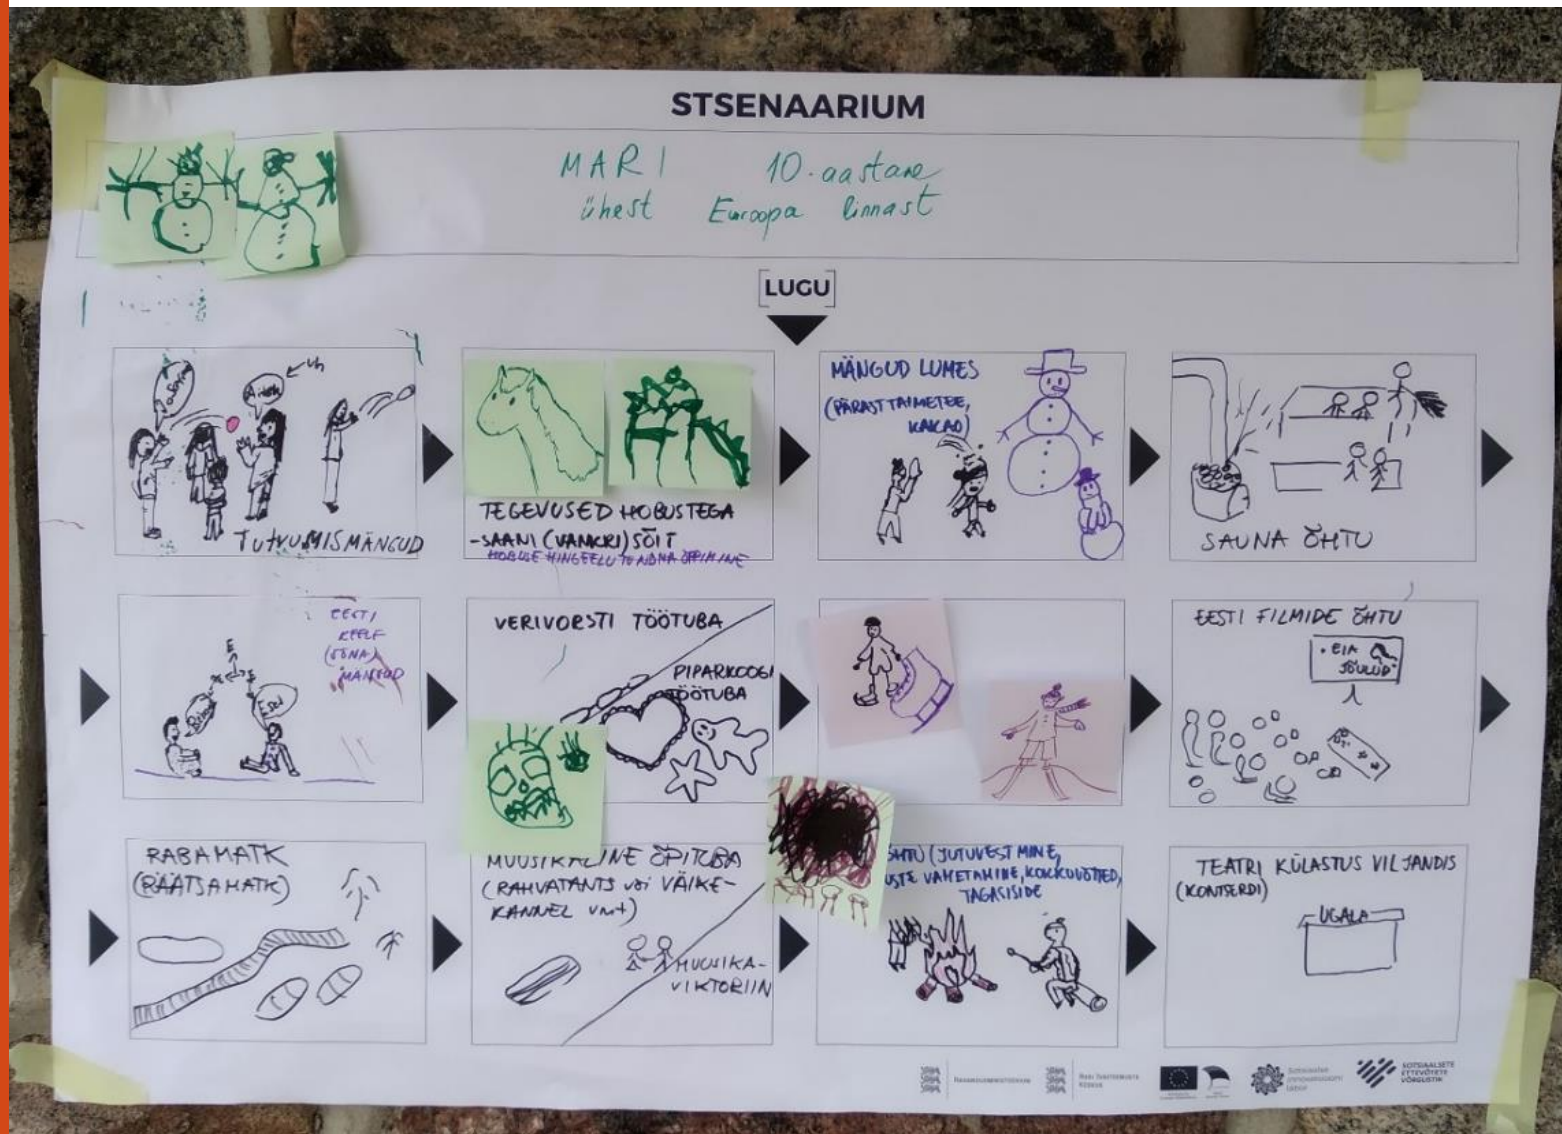 STSENAARIUM
MARI 10-aastane
ühest Euroopa linnast
LUGU
TUTVUMISMÄNGUD
TEGEVUSED HOBUSTEGA
-SAANI (VANKRI) SÕIT
HOBUSE HINGEELU TUNDMA ÕPPIMINE
MÄNGUD LUMES
(PÄRAST TAIMETEE,
KAKAO)
SAUNA ÕHTU
EESTI
KEELE
(SÕNA)
MÄNGUD
VERIVORSTI TÖÖTUBA
PIPARKOOGI
TÖÖTUBA
EESTI FILMIDE ÕHTU
"EIA
JÕULUD"
RABAMATK
(RÄÄTSAMATK)
MUUSIKALINE ÕPITUBA
(RAHVATANTS või VÄIKE-
KANNEL vmt)
MUUSIKA-
VIKTORIIN
ÕHTU (JUTUVESTMINE,
USTE VAHETAMINE, KOKKUVÕTTED,
TAGASISIDE
TEATRI KÜLASTUS VILJANDIS
(KONTSERDI)
UGALA
SOTSIAALSETE
ETTEVÕTETE
VÕRGUSTIK